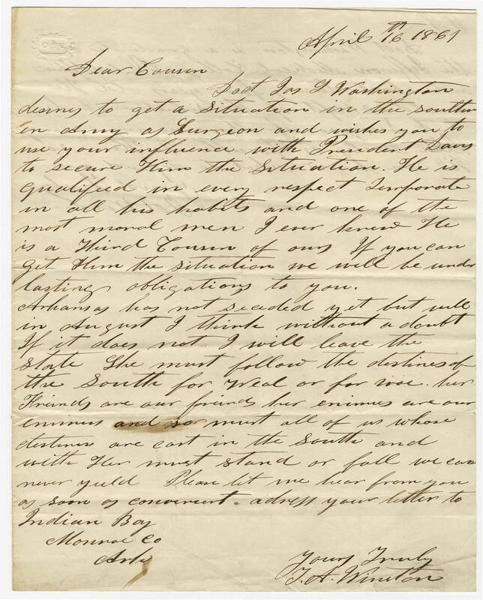 April 16th 1861
Dear Cousin
Doct Jos G Washington
desires to get a Situation in the Southe
rn Army as Surgeon and wishes you to
use your influence with President Davis
to secure Him the Situation. He is
qualified in every respect temporate
in all his habits and one of the
most moral men I ever knew He
is a Third Cousin of ours If you can
Get Him the situation we will be under
lasting obligations to you.
Arkansas has not seceded yet but will
in August I think without a doubt
If it does not I will leave the
State She must follow the destinies of
the South for weal or for woe. her
Friends are our friends her enimies are our
enimies and so must all of us whose
destinies are cast in the South and
with Her must stand or fall we can
never yeild Please let me hear from you
as soon as convenient. adress your letter to
Indian Bay
Monroe Co
Arks
Yours Truly
T. A. Winston